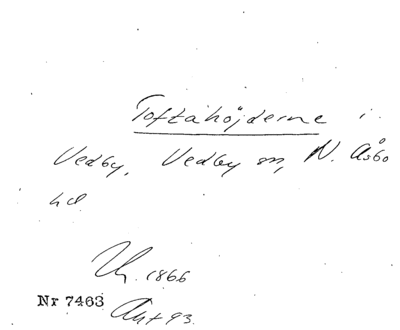 Toftahöjderne i
Vedby, Vedby sn, N. Åsbo
hd
1866
Nr 7463
93.